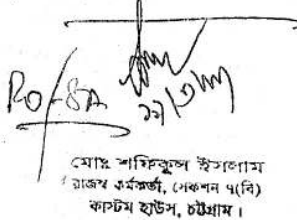 RO-8A
১১/৩/১১
মোঃ শফিকুল ইসলাম
রাজস্ব কর্মকর্তা, সেকশন ৭(বি)
কাস্টম হাউস, চট্টগ্রাম।